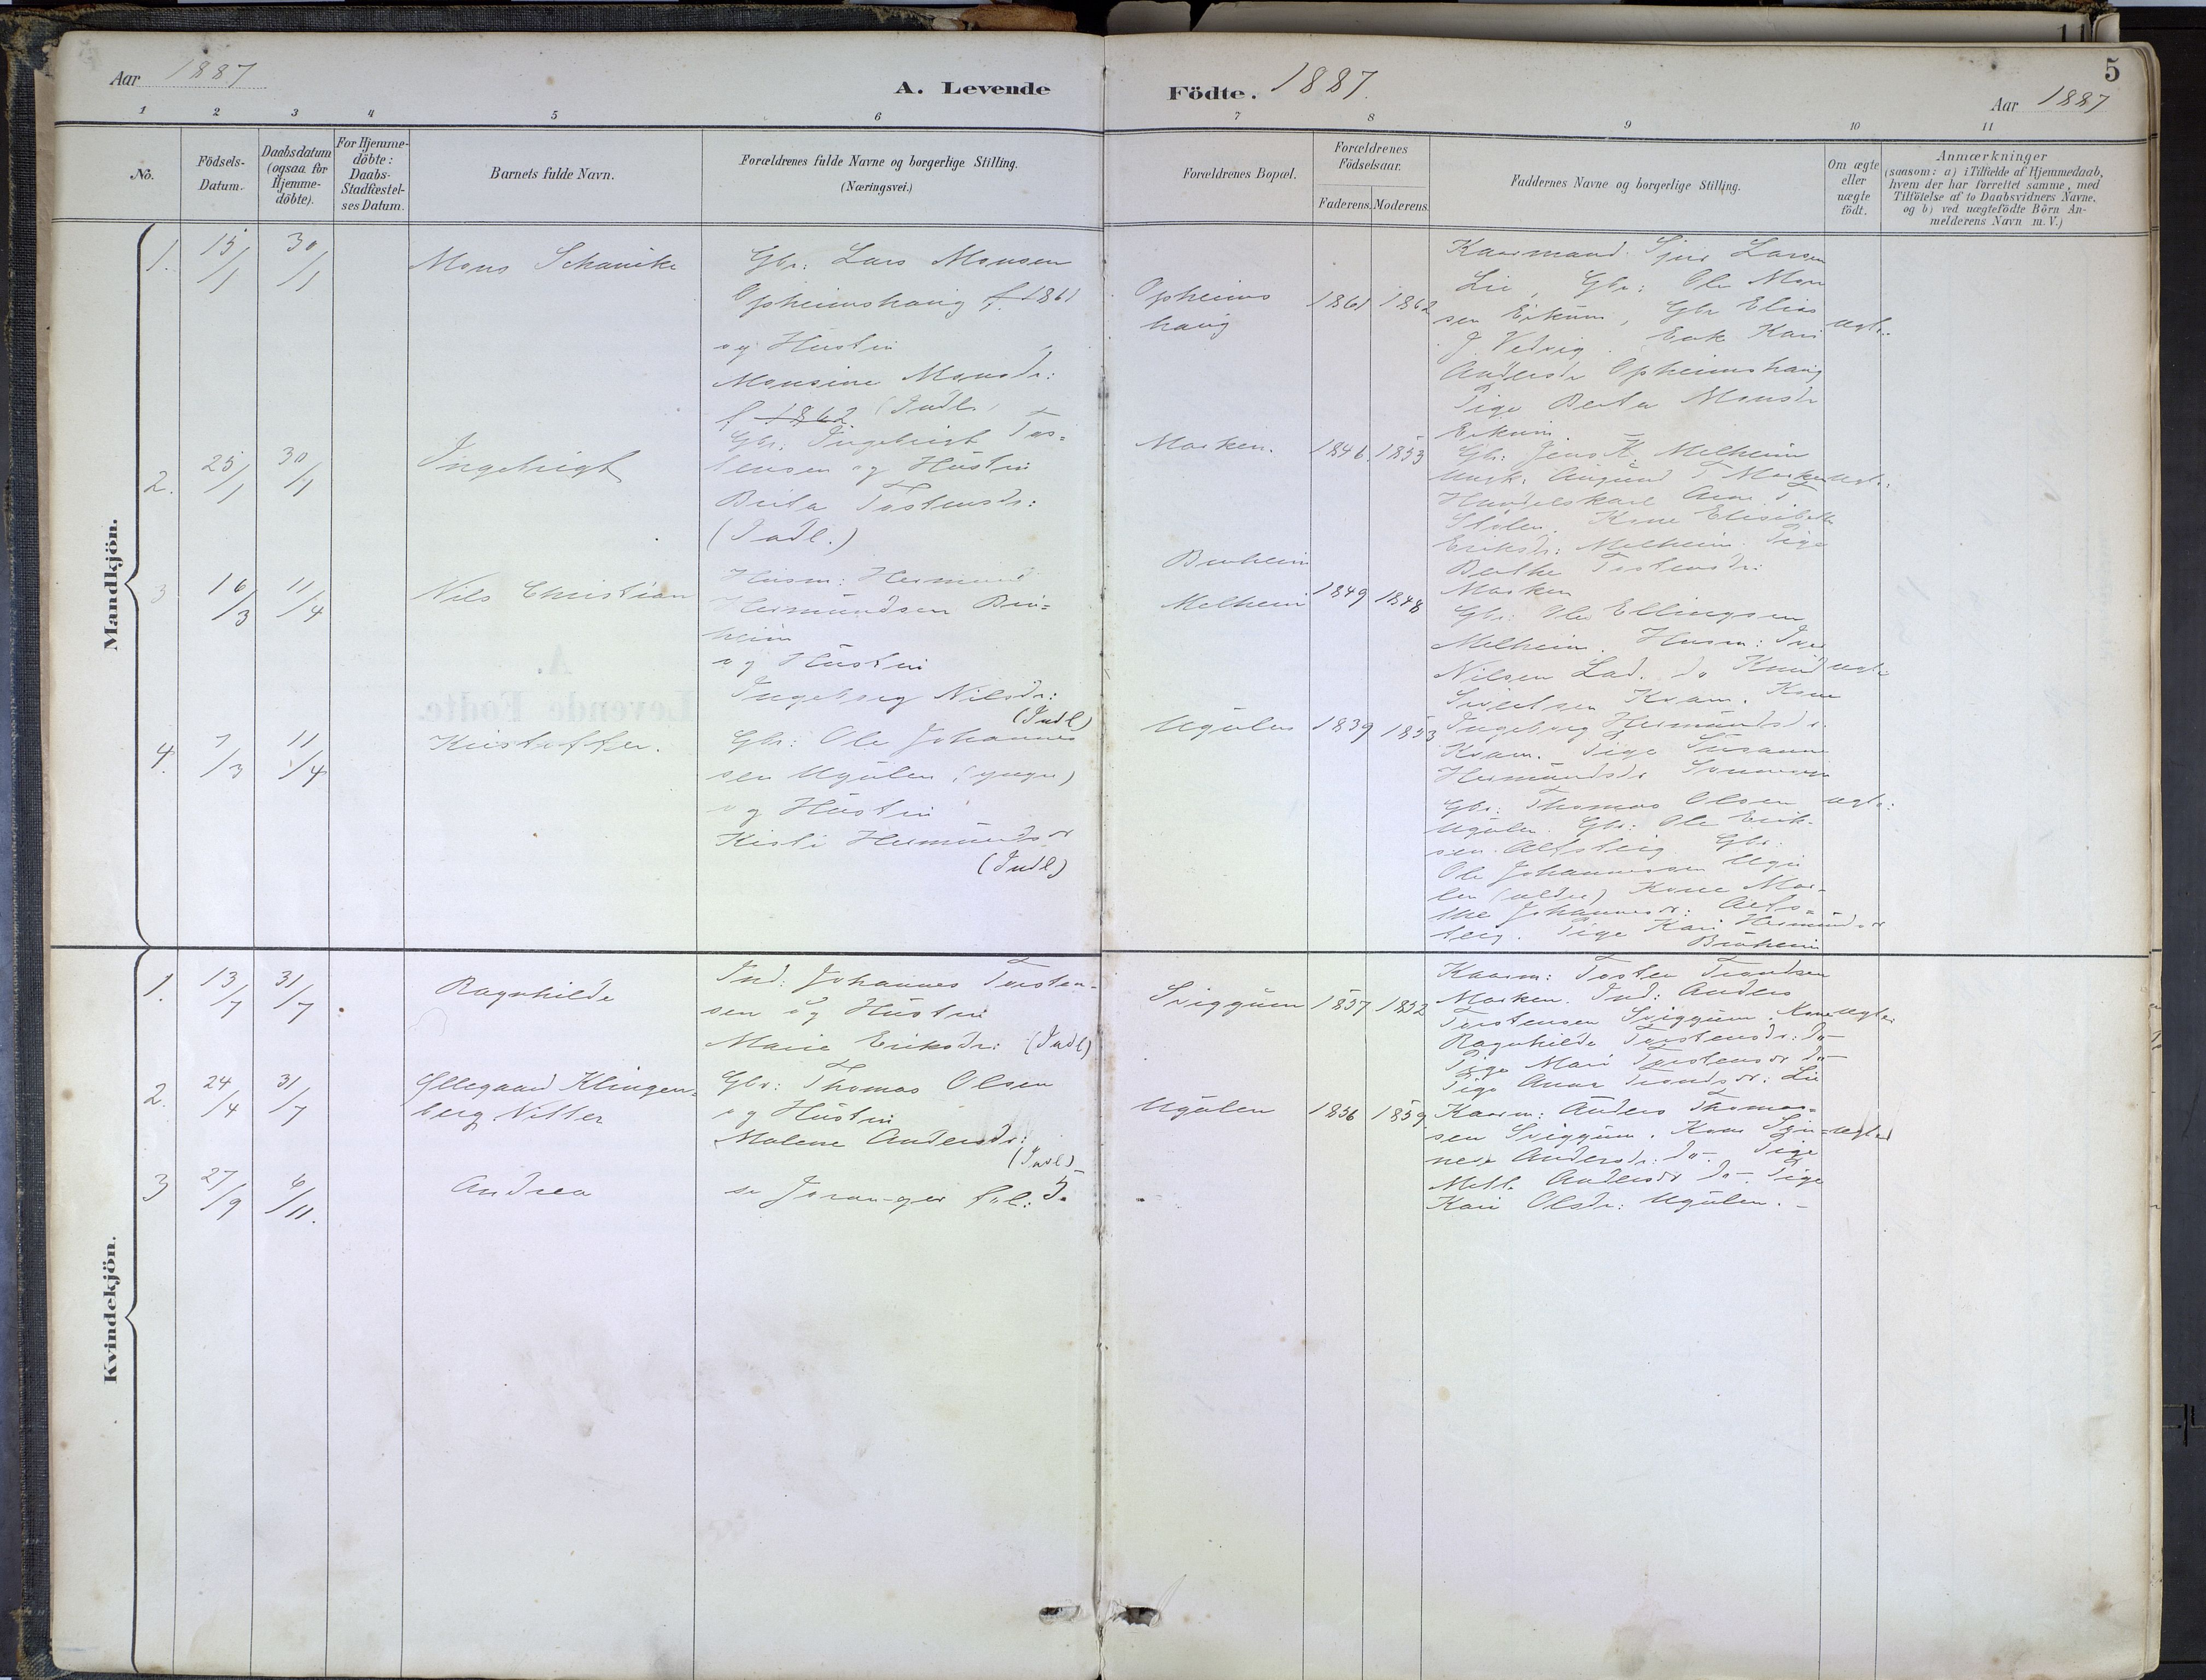 Aar 1887
A. Levende
Födte. 1887.
Aar 1887
5
1 2 3 4 5 6 7 8 9 10 11
No.
Födsels-
Datum.
Daabsdatum
(ogsaa for
Hjemme-
döbte).
For Hjemme-
döbte:
Daabs-
Stadfæstel-
ses Datum.
Barnets fulde Navn.
Forældrenes fulde Navne og borgerlige Stilling.
(Næringsvei.)
Forældrenes Bopæl.
Forældrenes
Födselsaar.
Faderens. Moderens.
Faddernes Navne og borgerlige Stilling.
Om ægte
eller
uægte
födt.
Anmærkninger
(saasom: a) i Tilfælde af Hjemmedaab,
hvem der har forrettet samme, med
Tilföielse af to Daabsvidners Navne,
og b) ved uægtefödte Börn An-
melderens Navn m. V.)
Mandkjön.
1. 15/1 30/1 Mons Schancke
Gbr: Lars Monsen
Opheimshaug f. 1861
og Hustru
Monsine Monsdr:
f 1862 (Indl.
Opheims
haug
1861 1862
Kaarmand Sjur Larsen
Lie, Gbr: Ole Mon
sen Eikum, Gbr Elias
J. Vedvig. Enke Kari
Andersdr Opheimshaug
Pige Berta Monsdr
Eikum.
ægte.
2. 25/1 30/1 Ingebrigt
Gbr: Ingebrigt Tos-
tensen og Hustru
Brita Tostensdr:
(Indl.)
Marken.
1846 1853
Gbr: Jens K. Melheim
Ungk: Aamund T Marken ægte:
Handelskarl T
Stølen. Kone Elisabeth
Eriksdr: Melheim. Pige
Berthe Tostensdr:
Marken
3 16/3 11/4 Nils Christian
Husm: Hermund
Hermundsen Bin-
heim
og Hustru
Ingeborg Nilsdr:
(Indl)
Binheim
Melheim
1849 1848
Gbr: Ole Ellingsen
Melheim. Husm: Iver
Nilsen Lad. do Knud ægte
Sivertsen Kvam. Kone
Ingeborg Hermundsdr.
Kvam. Pige Susanne
Hermundsdr
4. 7/3 11/4 Kristoffer.
Gbr: Ole Johannes
sen Ugulen (yngre)
og Hustru
Kirsti Hermundsdr
(Indl)
Ugulen
1839 1853
Gbr: Thomas Olsen ægte:
Ugulen. Gbr: Ole Erik-
sen Alfsteig Gbr.
Ole Johannessen Ugu
len (ældre) Kone Mar-
the Johannesdr: Alfs-
teig. Pige Kari Hermundsdr
Binheim
Kvindekjön.
1. 13/7 31/7 Ragnhilde
Ind: Johannes Torsten-
sen og Hustru
Marie Eriksdr: (Indl)
Sviggum
1857 1852
Kaarm: Tosten Trondsen
Marken. Ind: Anders
Torstensen Sviggum. Kone ægte:
Ragnhilde Torstensdr: do-
Pige Mari Torstensdr do-
Pige Anna Trondsdr: Lie
2. 24/4 31/7 Øllegaard Klingen-
berg Nitter
Gbr: Thomas Olsen
og Hustru
Malene Andersdr:
(Indl)-
Ugulen
1856 1859
Kaarm: Anders Thomas-
sen Sviggum. Kone Syn- ægte:
neve Andersdr: do-. Pige
Mette Andersdr do-. Pige
Kari Olsdr: Ugulen. -
3 27/9 6/11. Andrea
se Joranger fol: 5.